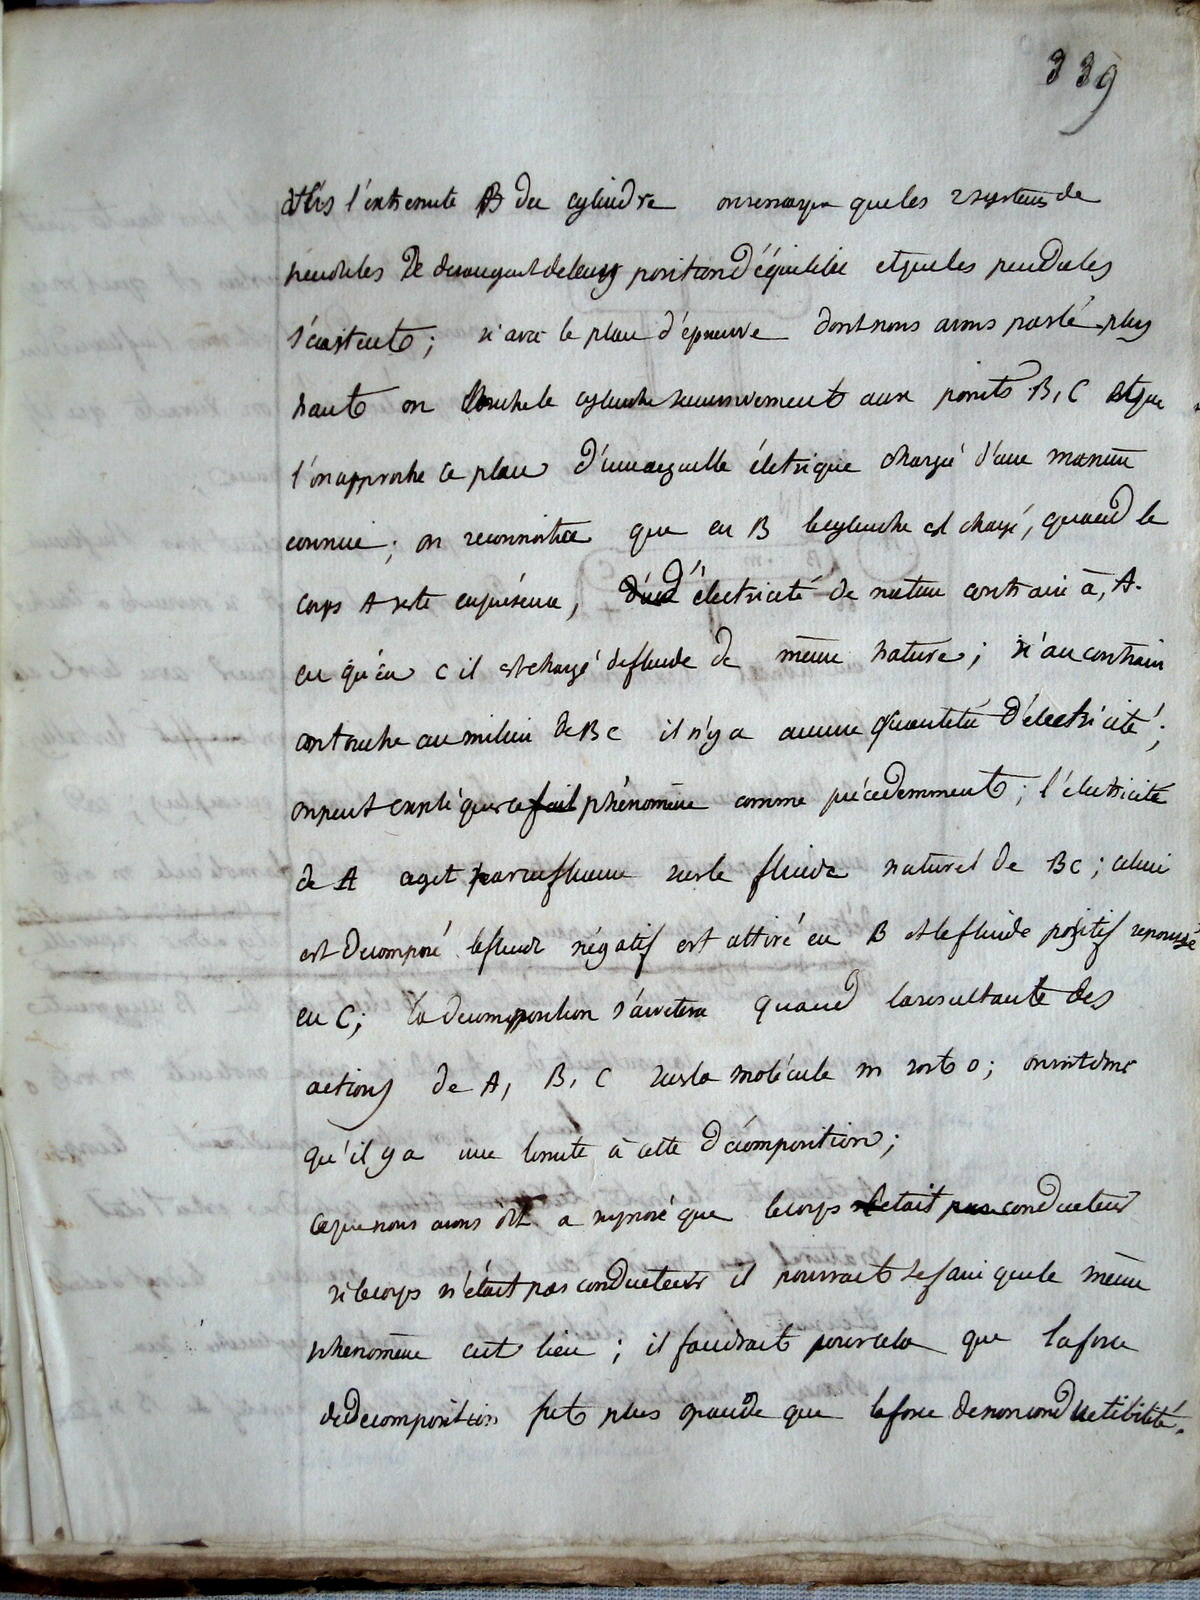 339
l'extremite B du cylindre on remarque que les 2 systems de
pendules se derangent de leurs position d'équilibre et que les pendules
s'écartent; si avec le plan d'épreuve dont nous avons parlé plus
haut on touche le cylindre successivement aux points B, C et que
l'on approche ce plan d'une aiguille életrique chargé d'une maniere
connue; on reconnoitra que en B le cylindre est chargé, quand le
corps A reste en présence, d' électricité de nature contraire à, A.
en qu'en C il est chargé de fluide de même nature; si au contraire
on touche au milieu de BC il n'y a aucune quantité d'électricité;
on peut expliquer ce fait phénomène comme précedemment; l'électricité
de A agit par influence sur le fluide naturel de BC; celui
est decomposé le fluide négatif est attiré en B et le fluide positif repoussé
en C; la decomposition s'arretera quand la resultante des
actions de A, B, C sur la molécule m soit 0; on voit donc
qu'il y a une limite à cette décomposition;
ce que nous avons dit a supposé que le corps etait pas conducteur
si le corps n'était pas conducteur il pourrait se faire que le même
phenomène eut lieu; il faudrait pour cela que la force
de decomposition fut plus grande que la force de non conductibilité.